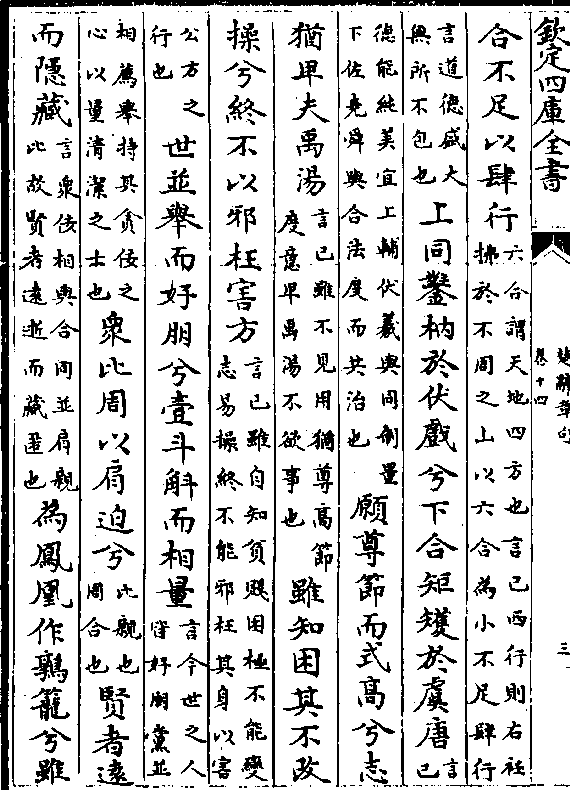 欽定四庫全書
楚辭章句
卷十四
三
合不足以肆行六合謂天地四方也言己西行則右衽拂於不周之山以六合為小不足肆行
言道德盛大無所不包也上同鑿枘於伏戲兮下合矩矱於虞唐言己
德能純美宜上輔伏羲與同制量下佐堯舜與合法度而共治也願尊節而式高兮志
猶卑夫禹湯言己雖不見用猶尊高節度意卑禹湯不欲事也雖知困其不改
操兮終不以邪枉害方言己雖自知貧賤困極不能變志易操終不能邪枉其身以害
公方之行也世並舉而好朋兮壹斗斛而相量言今世之人皆好朋黨並
相薦舉持其貪佞之心以量清潔之士也衆比周以肩迫兮比親也周合也賢者遠
而隱藏言衆佞相與合同並肩親比故賢者遠逝而藏匿也為鳳凰作鶉籠兮雖